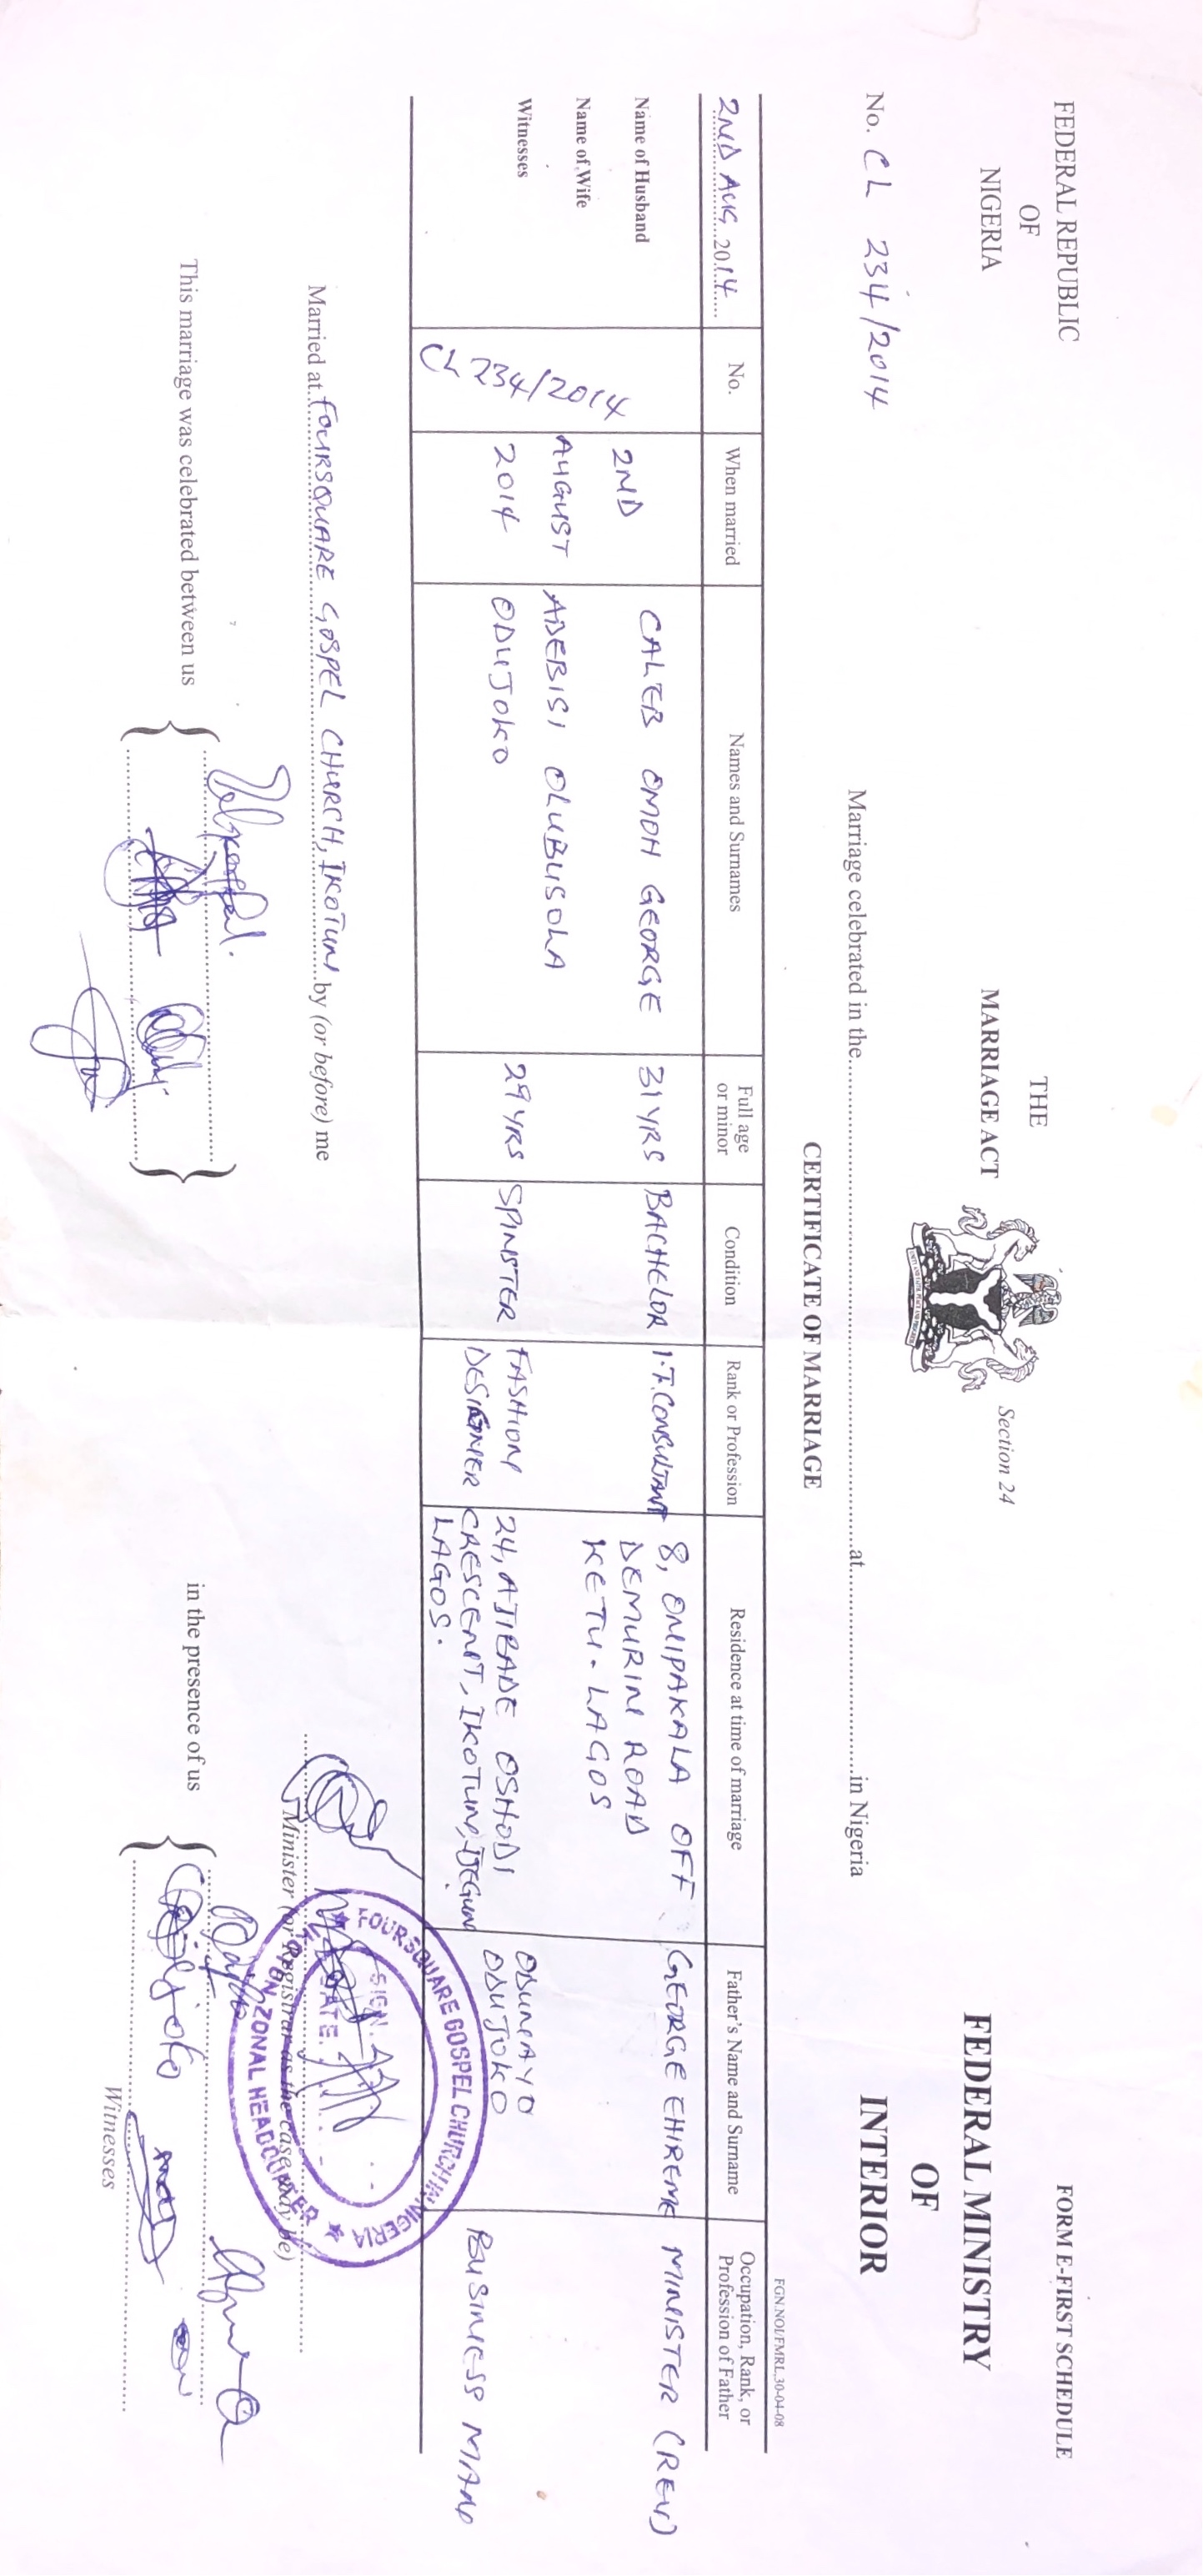 FEDERAL REPUBLIC
OF
NIGERIA
THE
MARRIAGE ACT
Section 24
FORM E-FIRST SCHEDULE
FEDERAL MINISTRY
OF
INTERIOR
No. CL 234/2014
Marriage celebrated in the..........at..........in Nigeria
CERTIFICATE OF MARRIAGE
FGN.NOI/FMRI,30-04-08
2ND AUG 2014
No.
When married
Names and Surnames
Full age or minor
Condition
Rank or Profession
Residence at time of marriage
Father's Name and Surname
Occupation, Rank, or Profession of Father
Name of Husband
Name of Wife
Witnesses
CL 234/2014
2ND
AUGUST
2014
CALEB OMOH GEORGE
31YRS
BACHELOR
I.T. CONSULTANT
8, ONIPAKALA OFF
DEMURIN ROAD
KETU. LAGOS
GEORGE EHIREME
MINISTER (REV)
ADEBISI OLUBUSOLA
ODUJOKO
29YRS
SPINSTER
FASHION
DESIGNER
24, AJIBADE OSHODI
CRESCENT, IKOTUN, IJEGUN
LAGOS.
ODUNAYO
ODUJOKO
BUSINESS MAN
Married at FOURSQUARE GOSPEL CHURCH, IKOTUN by (or before) me
Minister (or Registrar as the case may be)
FOURSQUARE GOSPEL CHURCH IN NIGERIA
SIGN.
DATE.
IKOTUN ZONAL HEADQUARTER
This marriage was celebrated between us
in the presence of us
Witnesses